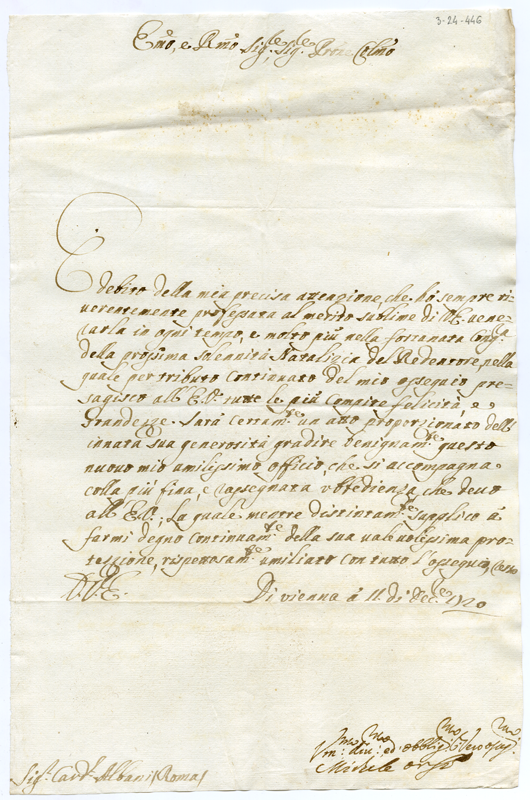 3-24-446
Emo, e Rmo Sigre, Sigre Prone Colmo
È debito della mia precisa attenzione, che hò sempre ri-
uerentemente professata al merito sublime di V.E. uene-
rarla in ogni tempo, e molto più nella fortunata Congra
della prossima solennità Natalizia del Redentore, nella
quale per tributo continuato del mio ossequio pre-
sagisco all' E.V. tutte le più compite felicità, e
Grandezze. Sarà certamte un atto proporzionato dell'
innata sua generosità gradire benignamte questo
nuouo mio umilissimo officio, che si accompagna
colla più fina, e rassegnata vbbedienza, che deuo
all' E.V.; La quale mentre distintamte supplico à
farmi degno continuamte della sua ualeuolissima pro-
tezzione, rispettosamte umiliato con tutto l'ossequio, resto
D.V.E.
Di vienna à 11. di Decbre 1720
Vmo diumo ed obbligmo seruo osseqmo
Michele
Sigr Cardl Albani Roma